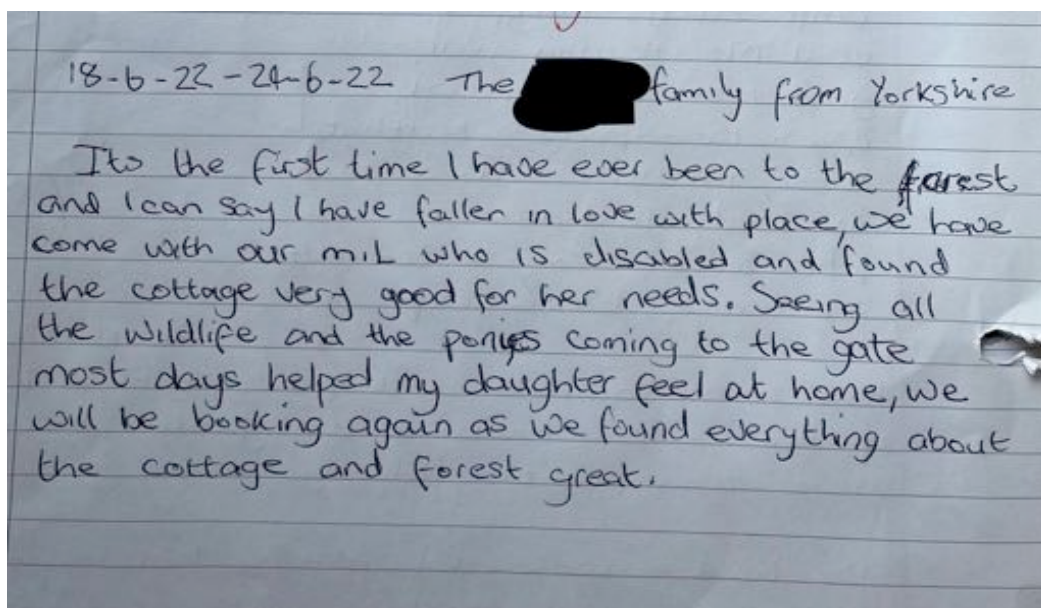 18-6-22 - 24-6-22 The family from Yorkshire
Its the first time I have ever been to the forest
and I can say I have fallen in love with place, we have
come with our m.i.L who is disabled and found
the cottage very good for her needs. Seeing all
the wildlife and the ponies coming to the gate
most days helped my daughter feel at home, we
will be booking again as we found everything about
the cottage and forest great.